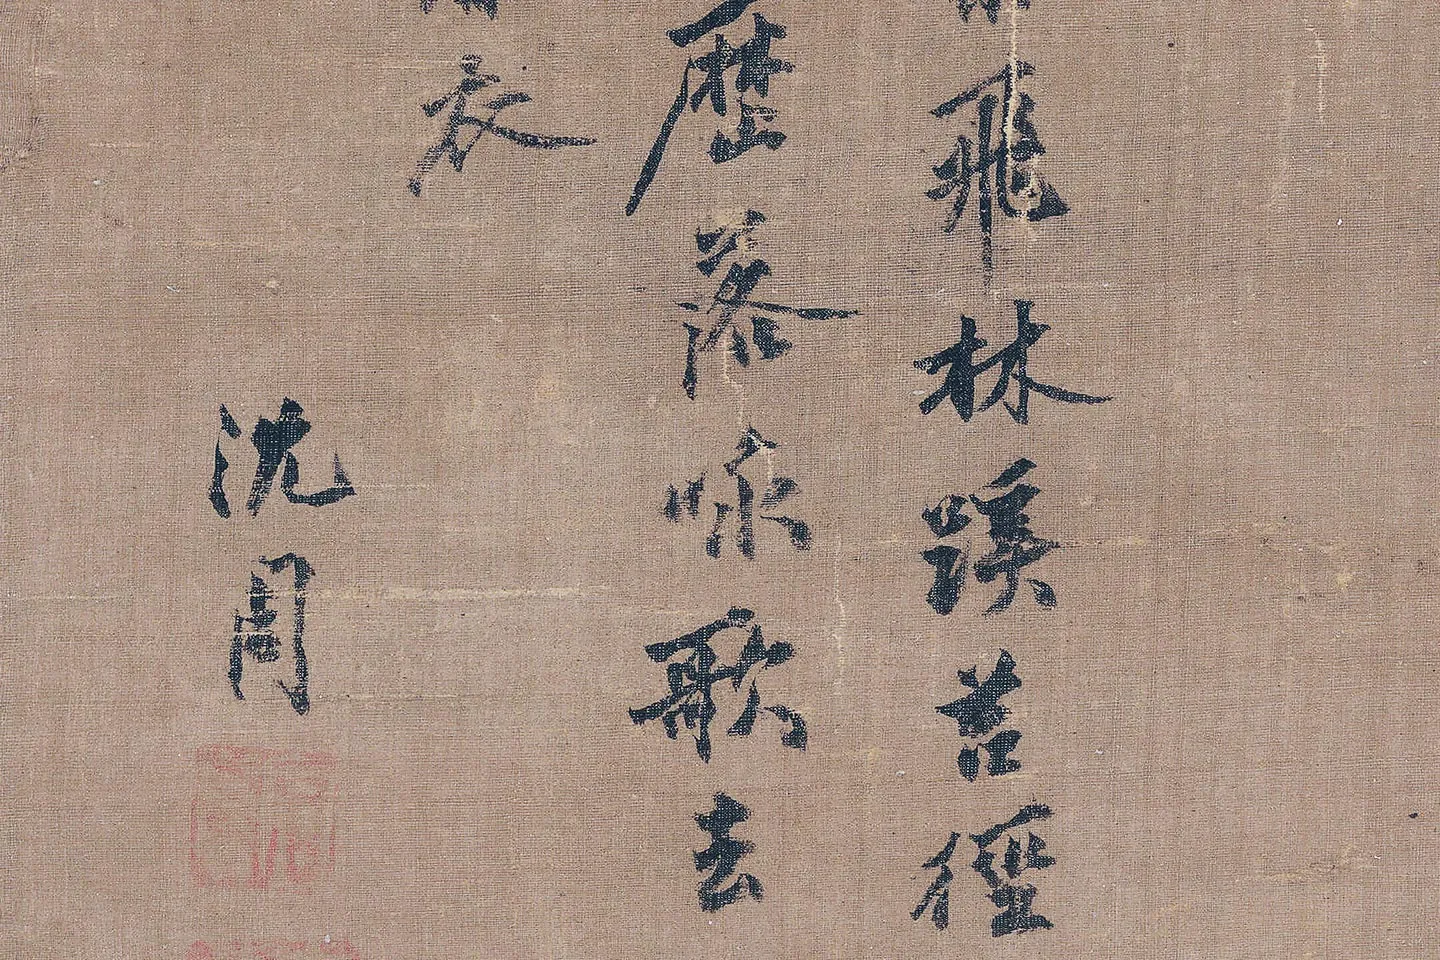 飛林蹊苔徑
歷落咏歌去
衣
沈周